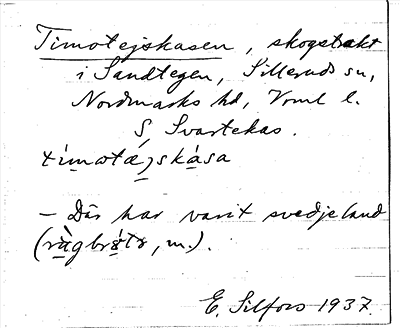 Timotejskasen, skogstrakt
i Sandtegen, Silleruds sn,
Nordmarks hd, Vrml l.
S, Svartekas.
tímotǽjskása
– Där har varit svedjeland
(rågbröte, m.).
E. Silfors 1937.